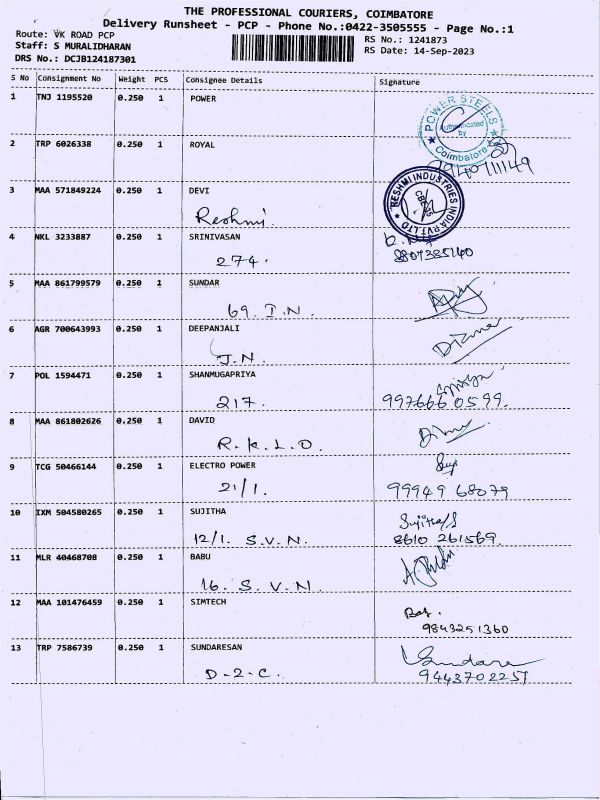 THE PROFESSIONAL COURIERS, COIMBATORE
Delivery Runsheet - PCP - Phone No.:0422-3505555 - Page No.:1
Route: VK ROAD PCP
RS No.: 1241873
Staff: S MURALIDHARAN
RS Date: 14-Sep-2023
DRS No.: DCJB124187301
S No Consignment No Weight PCS Consignee Details Signature
1 TNJ 1195520 0.250 1 POWER
POWER STEELS
Authenticated
by
Coimbatore
2 TRP 6026338 0.250 1 ROYAL
3 MAA 571849224 0.250 1 DEVI
Reshmi.
RESHMI INDUSTRIES INDIA PVT LTD
4 NKL 3233887 0.250 1 SRINIVASAN
274.
8807385140
5 MAA 861799579 0.250 1 SUNDAR
69. I.N.
6 AGR 700643993 0.250 1 DEEPANJALI
J.N.
7 POL 1594471 0.250 1 SHANMUGAPRIYA
217.
9976660599.
8 MAA 861802626 0.250 1 DAVID
R.K.L.O.
9 TCG 50466144 0.250 1 ELECTRO POWER
21/1.
99949 68079
10 IXM 504580265 0.250 1 SUJITHA
12/1. S.V.N.
8610 261569.
11 MLR 40468708 0.250 1 BABU
16. S.V.N.
12 MAA 101476459 0.250 1 SIMTECH
9843251360
13 TRP 7586739 0.250 1 SUNDARESAN
D-2-C.
9443702257